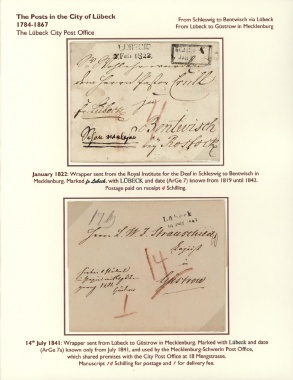 The Posts in the City of Lübeck
1784-1867
The Lübeck City Post Office
From Schleswig to Bentwisch via Lübeck
From Lübeck to Güstrow in Mecklenburg
LÜBECK
Bentwisch
bey Rostock
January 1822: Wrapper sent from the Royal Institute for the Deaf in Schleswig to Bentwisch in
Mecklenburg. Marked fr Lübeck, with LÜBECK and date (ArGe 7) known from 1819 until 1842.
Postage paid on receipt 4 Schilling.
Lübeck
Güstrow
14th July 1841: Wrapper sent from Lübeck to Güstrow in Mecklenburg. Marked with Lübeck and date
(ArGe 7a) known only from July 1841, and used by the Mecklenburg-Schwerin Post Office,
which shared premises with the City Post Office at 18 Mengstrasse.
Manuscript 14 Schilling for postage and 1 for delivery fee.